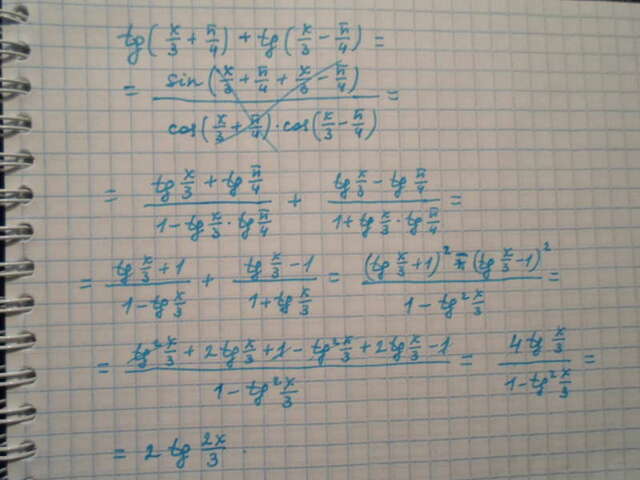 tg(x/3 + π/4) + tg(x/3 − π/4) =
= sin(x/3 + π/4 + x/3 − π/4) / cos(x/3 + π/4) · cos(x/3 − π/4) =
= (tg x/3 + tg π/4) / (1 − tg x/3 · tg π/4) + (tg x/3 − tg π/4) / (1 + tg x/3 · tg π/4) =
= (tg x/3 + 1) / (1 − tg x/3) + (tg x/3 − 1) / (1 + tg x/3) = ((tg x/3 + 1)² − (tg x/3 − 1)²) / (1 − tg² x/3) =
= (tg² x/3 + 2 tg x/3 + 1 − tg² x/3 + 2 tg x/3 − 1) / (1 − tg² x/3) = 4 tg x/3 / (1 − tg² x/3) =
= 2 tg 2x/3 .